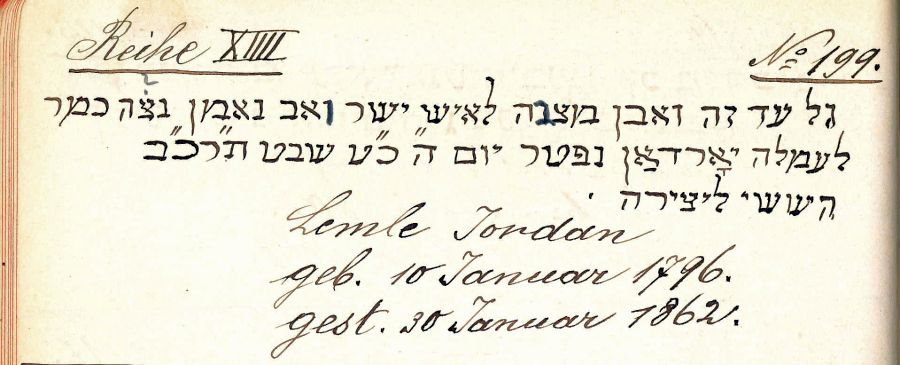 Reihe XIIII No 199.
גל עד זה ואבן מצבה לאיש ישר ואב נאמן נצה כמר
לעמלה יאָרדאַן נפטר יום ה״ כ״ט שבט ת״רכ״ב
הששי ליצירה .
Lemle Jordan
geb. 10 Januar 1796.
gest. 30 Januar 1862.